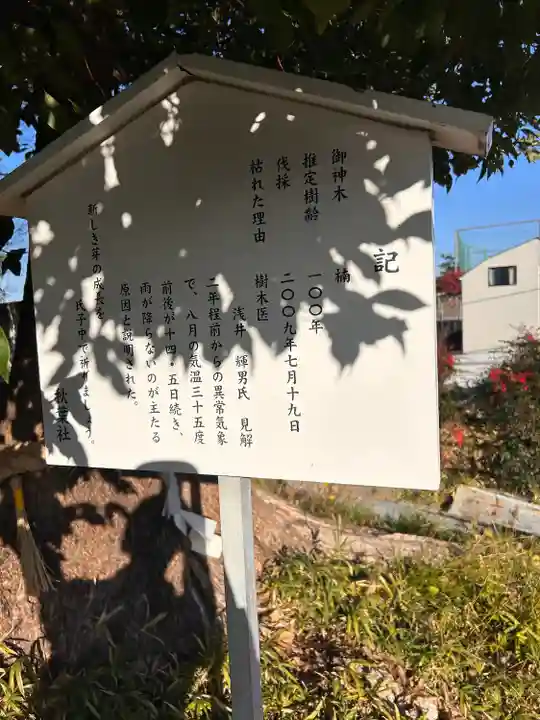 記
御神木　楠
推定樹齢　一〇〇年
伐採　二〇〇九年七月十九日
枯れた理由　樹木医
浅井　輝男氏　見解
二年程前からの異常気象
で、八月の気温三十五度
前後が十四・五日続き、
雨が降らないのが主たる
原因と説明された。
新しき芽の成長を
氏子中で祈りましょう。
秋葉社